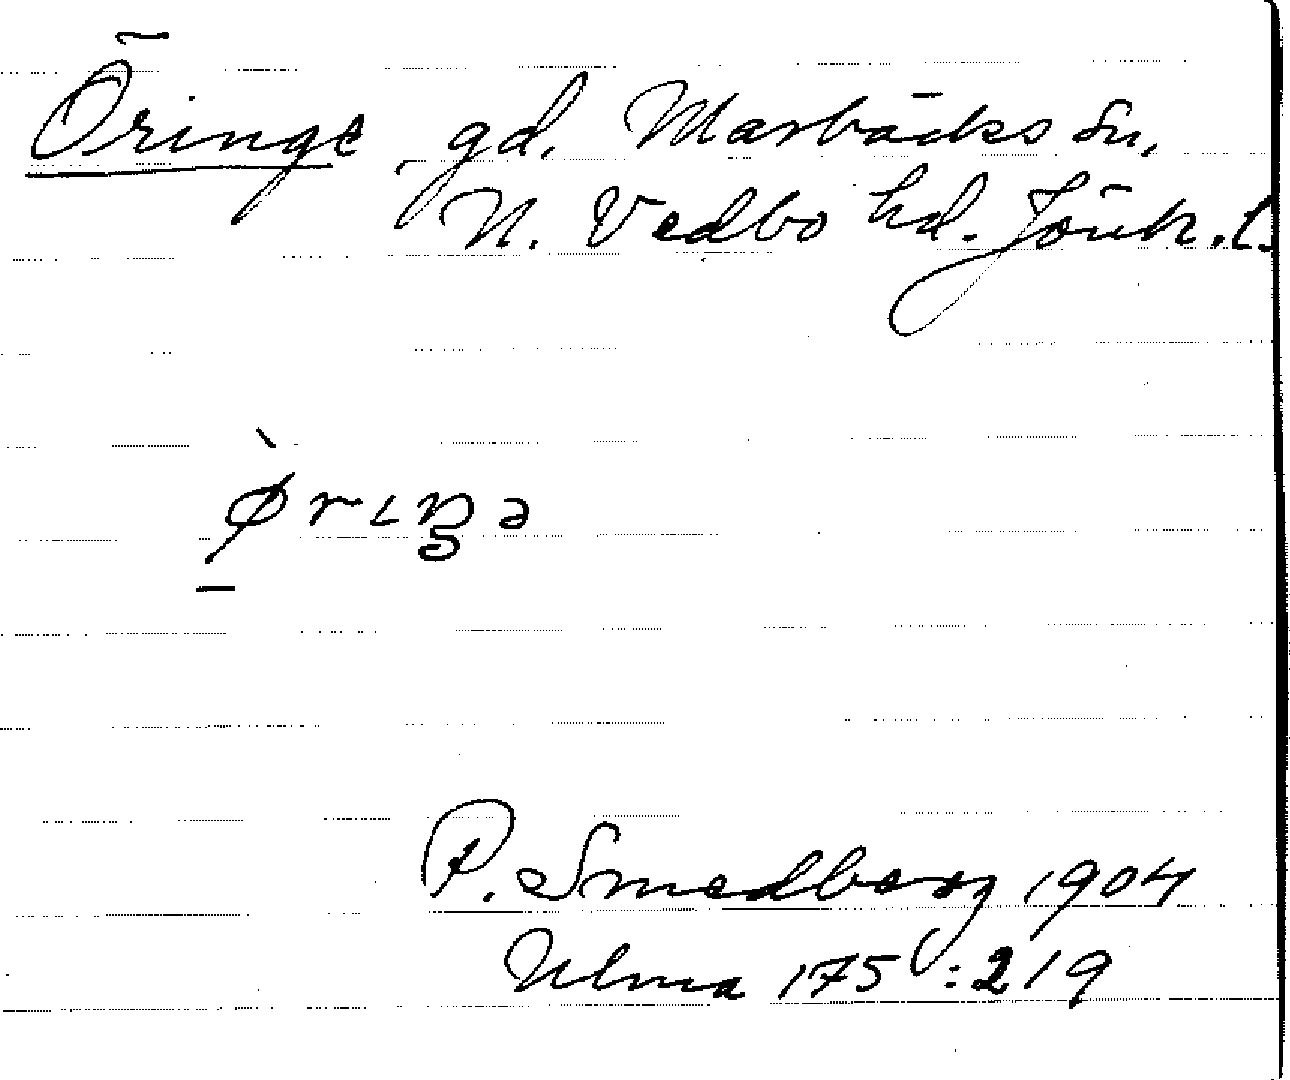 Öringe gd. Marbäcks sn,
N. Vedbo hd. Jönk. l.
P. Smedberg 1904
Ulma 175:219